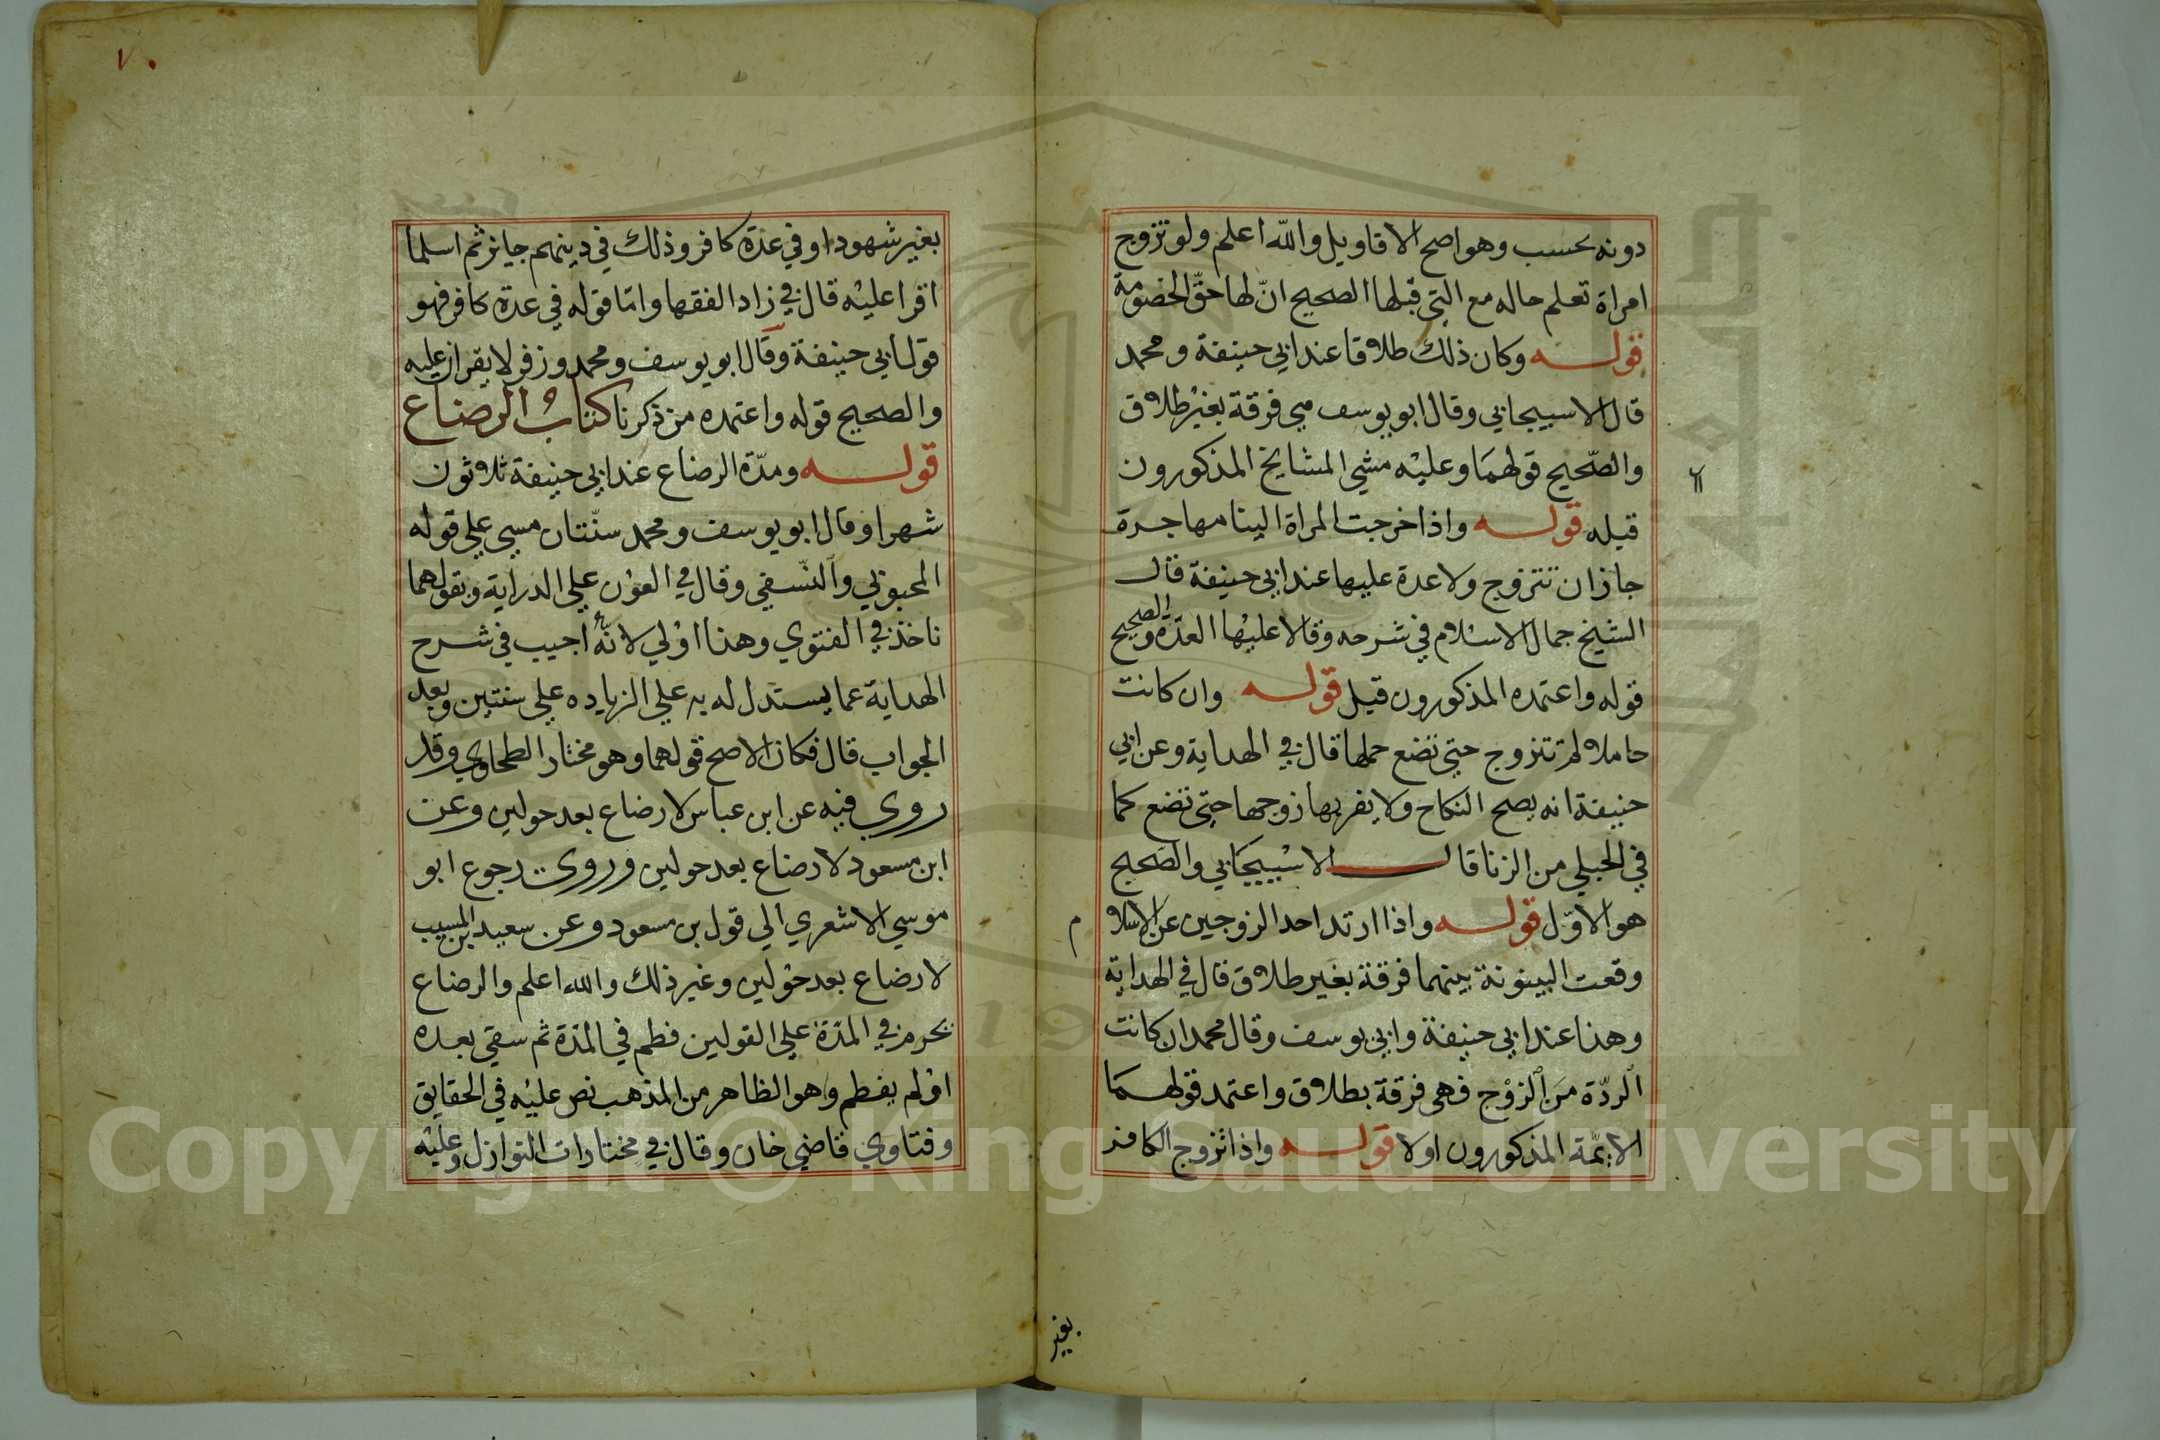 دونه بحسب وهو اصح الاقاويل والله اعلم ولو تزوج
امراة تعلم حاله مع التي قبلها الصحيح انّ لها حقّ الخصومة
قوله وكان ذلك طلاقا عند ابي حنيفة ومحمد
قال الاسبيجابي وقال ابويوسف هي فرقة بغير طلاق
والصّحيح قولهما وعليه مشي المشايخ المذكورون
قبله قوله واذا خرجت المراة الينا مهاجرة
جازان تتزوج ولاعدة عليها عند ابي حنيفة قال
الشيخ جمال الاسلام في شرحه وقالا عليها العدّة والصحيح
قوله واعتمده المذكورون قبل قوله وان كانت
حاملا لم تتزوج حتي تضع حملها قال في الهداية وعن ابي
حنيفة انه يصح النكاح ولا يقربها زوجها حتي تضع كما
في الحبلي من الزنا قال الاسبيجابي والصحيح
هو الاوّل قوله واذا ارتد احد الزوجين عن الاسلام
وقعت البينونة بينهما فرقة بغير طلاق قال في الهداية
وهذا عند ابي حنيفة وابي يوسف وقال محمد ان كانت
الردّة من الزوج فهي فرقة بطلاق واعتمد قولهما
الايمّة المذكورون اولا قوله واذا تزوج الكافر
بغير
٧٠
بغير شهود او في عدة كافر وذلك في دينهم جايز ثم اسلما
اقرا عليه قال في زاد الفقها وامّا قوله في عدة كافر فهو
قول ابي حنيفة وقال ابويوسف ومحمد وزفر لا يقران عليه
والصحيح قوله واعتمده من ذكرنا كتاب الرضاع
قوله ومدّة الرضاع عند ابي حنيفة ثلاثون
شهرا وقال ابويوسف ومحمد سنّتان مشي علي قوله
المحبوبي والنّسفي وقال في العون علي الدراية وبقولهما
ناخذ في الفتوي وهذا اولي لانّه اجيب في شرح
الهداية عما يستدل له به علي الزياده علي سنتين وبعد
الجواب قال فكان الاصح قولهما وهو مختار الطحاوي وقد
روي فيه عن ابن عباس لا رضاع بعد حولين وعن
ابن مسعود لا رضاع بعد حولين وروي رجوع ابو
موسي الاشعري الي قول بن مسعود وعن سعيد ابن المسيب
لا رضاع بعد حولين وغير ذلك والله اعلم والرضاع
يحرم في المدّة علي القولين فطم في المدّة ثم سقي بعده
اولم يفطم وهو الظاهر من المذهب نص عليه في الحقايق
وفتاوي قاضي خان وقال في مختارات النوازل وعليه
Copyright © King Saud University